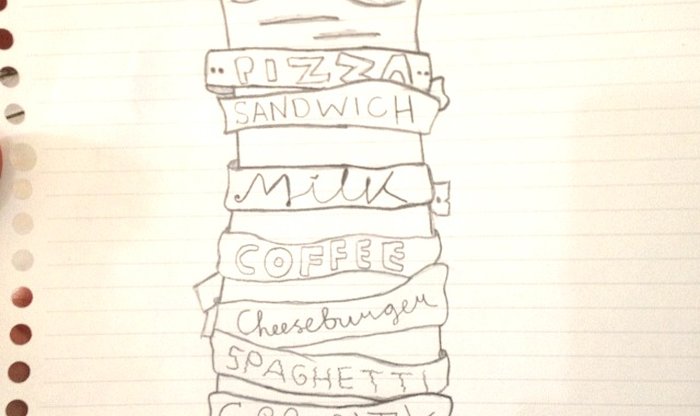 PIZZA
SANDWICH
Milk
COFFEE
Cheeseburger
SPAGHETTI